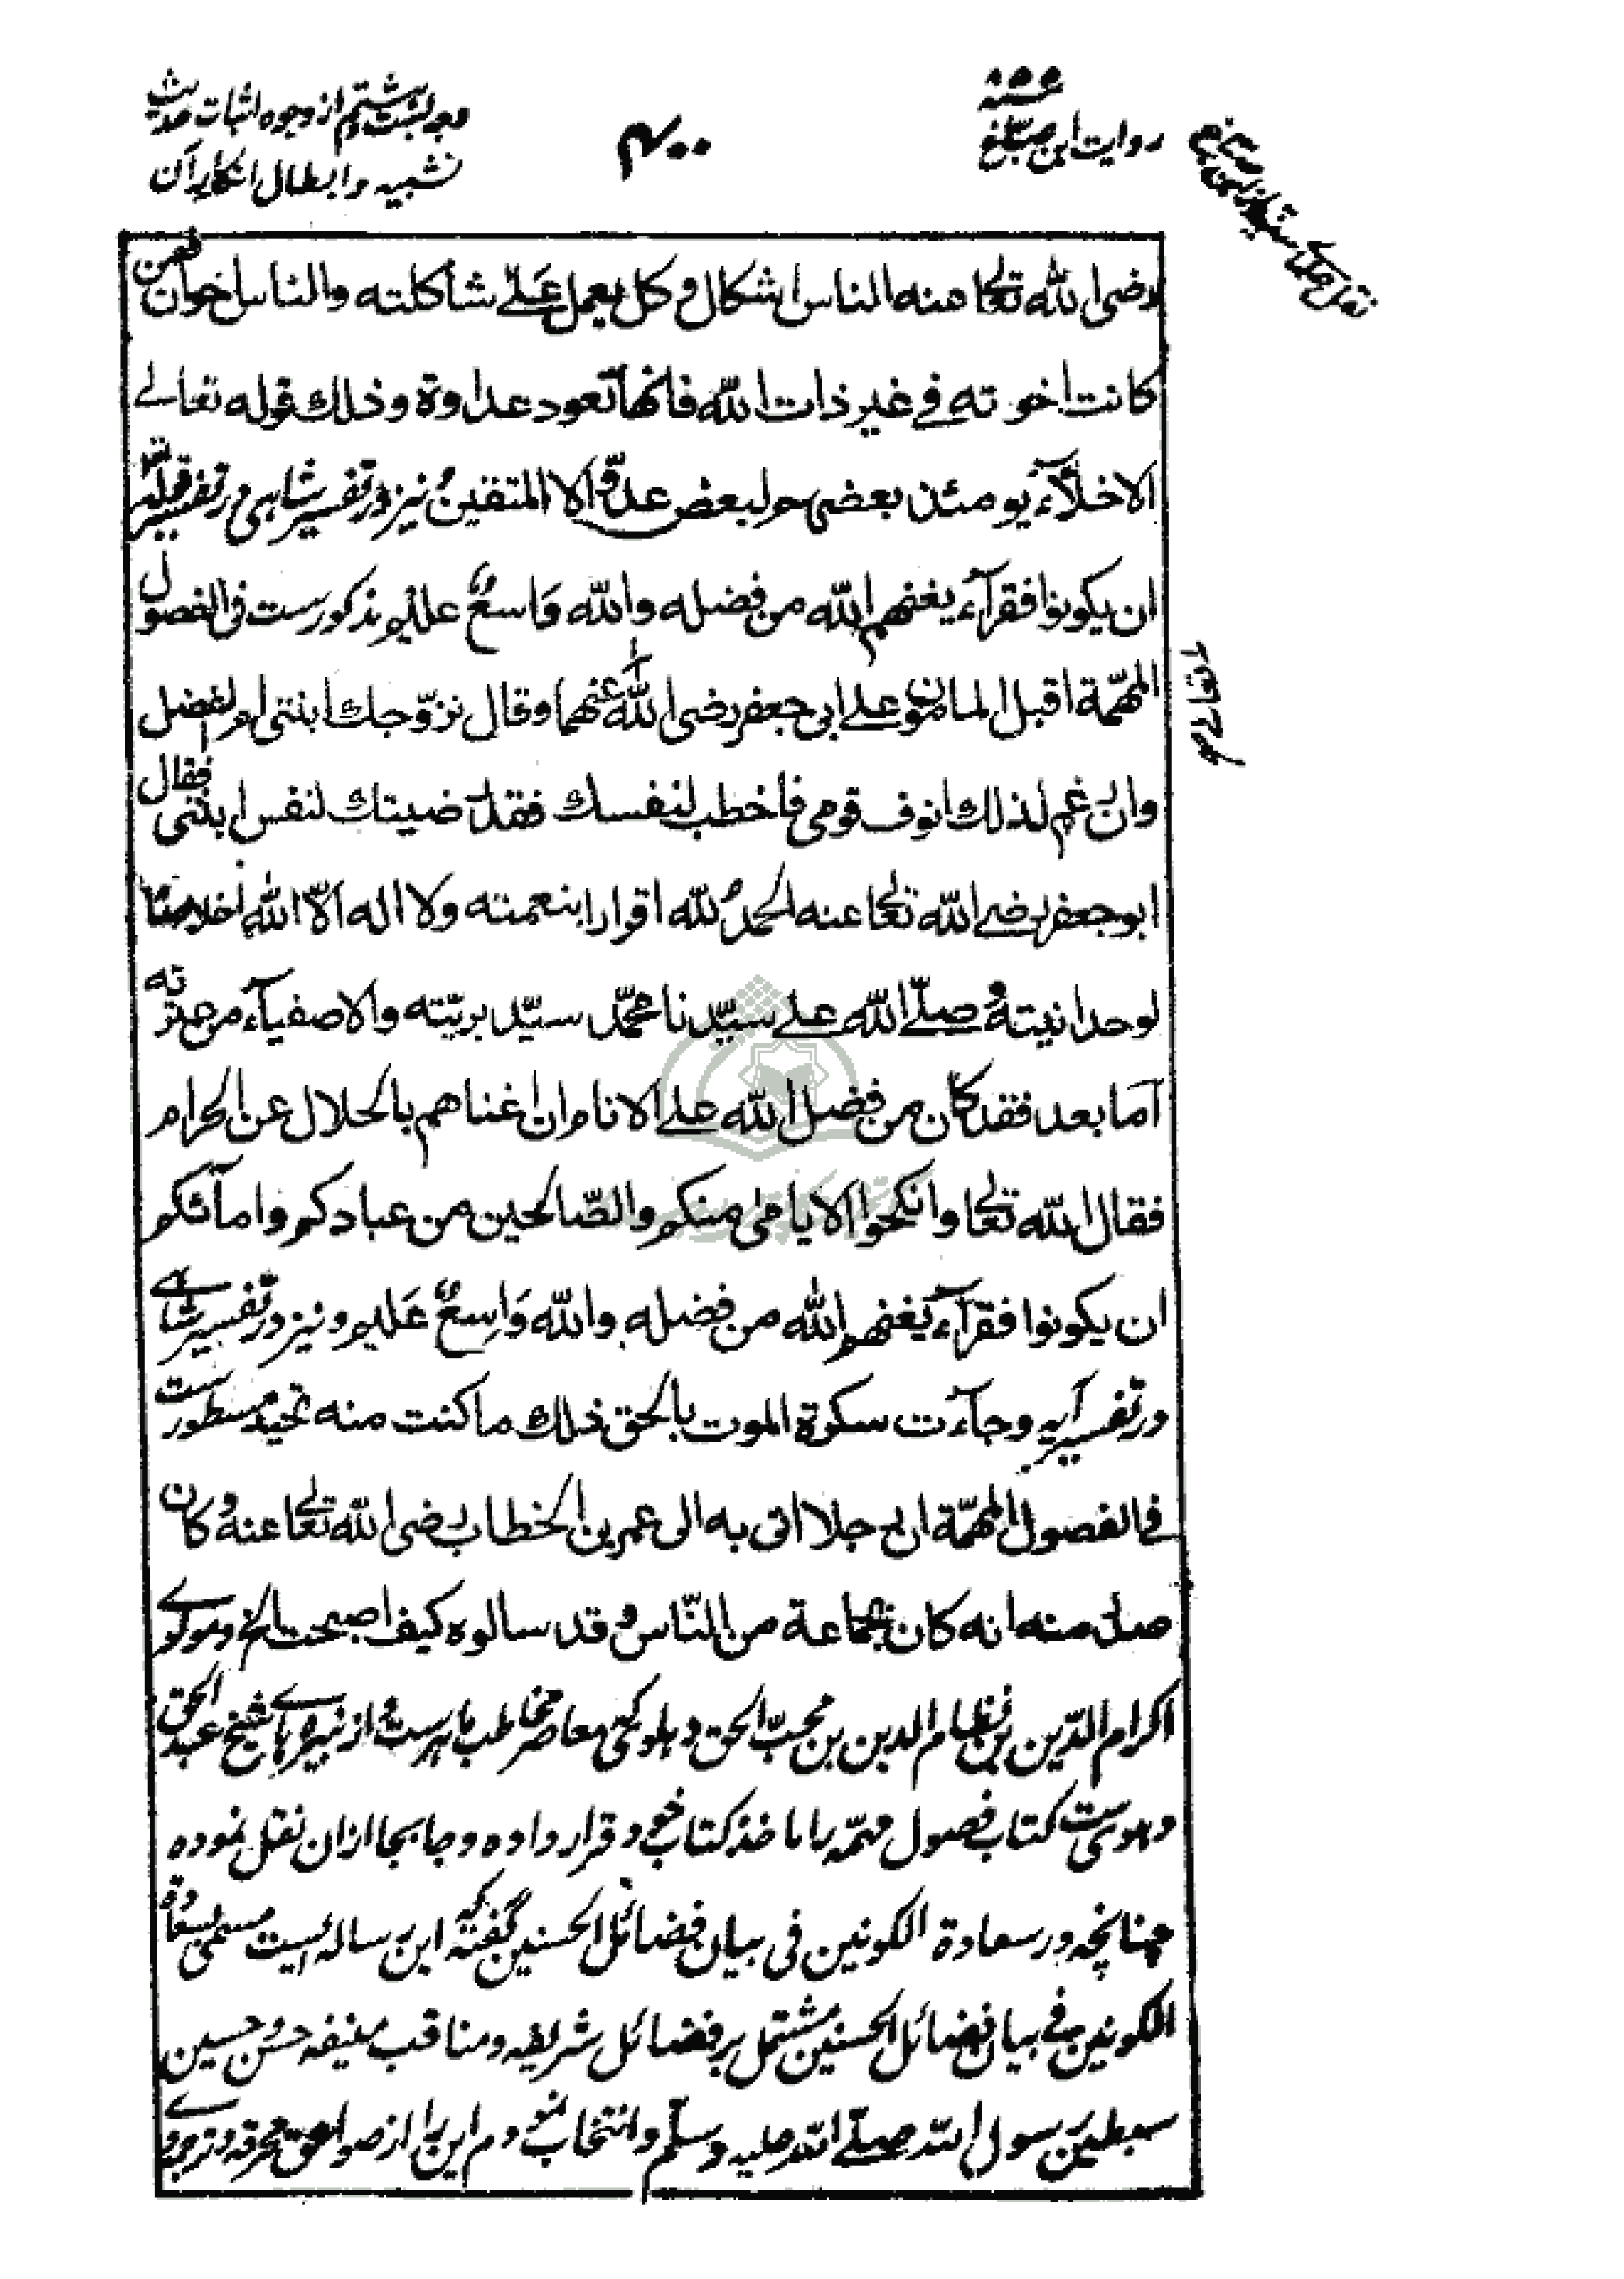 روایت ابن صبّاغ
۴۰۰
وجه بست و هشتم از وجوه اثبات حدیث
تشبیه و ابطال انکار آن
رضی الله تعالی عنه الناس اشکال و کل یعمل علی شاکلته والناس اخوان فمن
کانت اخوته فی غیر ذات الله فانّها تعود عداوة و ذلك قوله تعالی
الاخلّآء یومئذ بعضهم لبعض عدوّ الا المتقین و نیز در تفسیر شاهی در تفسیر قوله تعالی
ان یکونوا فقرآء یغنهم الله من فضله والله واسعٌ علیم مذکورست فی الفصول
المهمّة اقبل المامون علی ابی جعفر رضی الله عنهما وقال نزوّجك ابنتی ام الفضل
وان رغم لذلك انوف قومی فاخطب لنفسك فقد رضیتك لنفس ابنتی فقال
ابو جعفر رضی الله تعالی عنه الحمدُ لله اقرارا بنعمته ولا اله الّا الله اخلاصًا
لوحدانیته و صلّی الله علی سیّدنا محمّد سیّد بریّته والاصفیآء من عترته
آما بعد فقد کان من فضل الله علی الانام ان اغناهم بالحلال عن الحرام
فقال الله تعالی وانکحوا الایامی منکم والصّالحین من عبادکم وامآئکم
ان یکونوا فقرآء یغنهم الله من فضله والله وَاسِعٌ عَلیم و نیز در تفسیر شاهی
در تفسیر آیه وجآءت سکرة الموت بالحق ذلك ما کنت منه تحید مسطورست
فی الفصول المهمّة ان رجلا اتی به الی عمر بن الخطاب رضی الله تعالی عنه و کان
صدر منه انه کان بجماعة من النّاس و قد سالوه کیف اصبحت الخ و مولوی
اکرام الدّین بن نظام الدین بن محبّ الحق دهلوی که معاصر مخاطب ماهرست و از نبیره‌های شیخ عبد الحق
دهلوی ست کتاب فصول مهمّه را ماخذ کتاب خود قرار داده و جابجا ازان نقل نموده
چنانچه در سعادة الکونین فی بیان فضائل الحسنین گفته که این رساله ایست مسمی بسعادة
الکونین فی بیان فضائل الحسنین مشتمل بر فضائل شریفه و مناقب منیفه حسن و حسین
سبطین رسول الله صلّی الله علیه وسلّم و انتخاب نمودم این را از صواعق محرقه و ترجمه وی